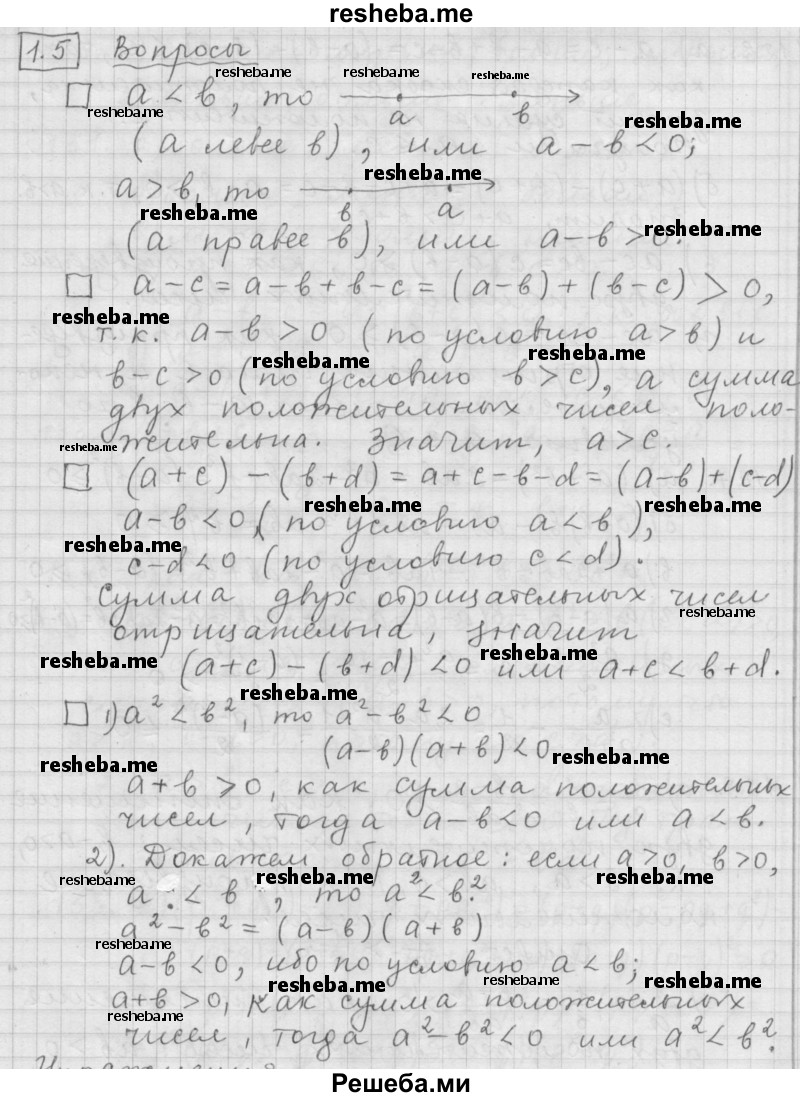 resheba.me
1.5 Вопросы
resheba.me resheba.me resheba.me
□ a < b, то a b
resheba.me resheba.me
(a левее b), или a - b < 0;
resheba.me
a > b, то b a
resheba.me resheba.me
(a правее b), или a - b > 0.
□ a - c = a - b + b - c = (a - b) + (b - c) > 0,
resheba.me
т. к. a - b > 0 (по условию a > b) и
resheba.me resheba.me
b - c > 0 (по условию b > c), а сумма
двух положительных чисел поло-
resheba.me
жительна. Значит, a > c.
□ (a + c) - (b + d) = a + c - b - d = (a - b) + (c - d)
resheba.me resheba.me
a - b < 0 (по условию a < b),
resheba.me
c - d < 0 (по условию c < d).
Сумма двух отрицательных чисел
resheba.me
отрицательна, значит
resheba.me resheba.me
(a + c) - (b + d) < 0 или a + c < b + d.
resheba.me
□ 1) a² < b², то a² - b² < 0
(a - b)(a + b) < 0
resheba.me resheba.me
a + b > 0, как сумма положительных
чисел, тогда a - b < 0 или a < b.
2). Докажем обратное: если a > 0, b > 0,
resheba.me resheba.me resheba.me
a < b, то a² < b².
a² - b² = (a - b)(a + b)
resheba.me
a - b < 0, ибо по условию a < b;
resheba.me resheba.me resheba.me
a + b > 0, как сумма положительных
resheba.me
чисел, тогда a² - b² < 0 или a² < b².
Упражнения
Решеба.ми